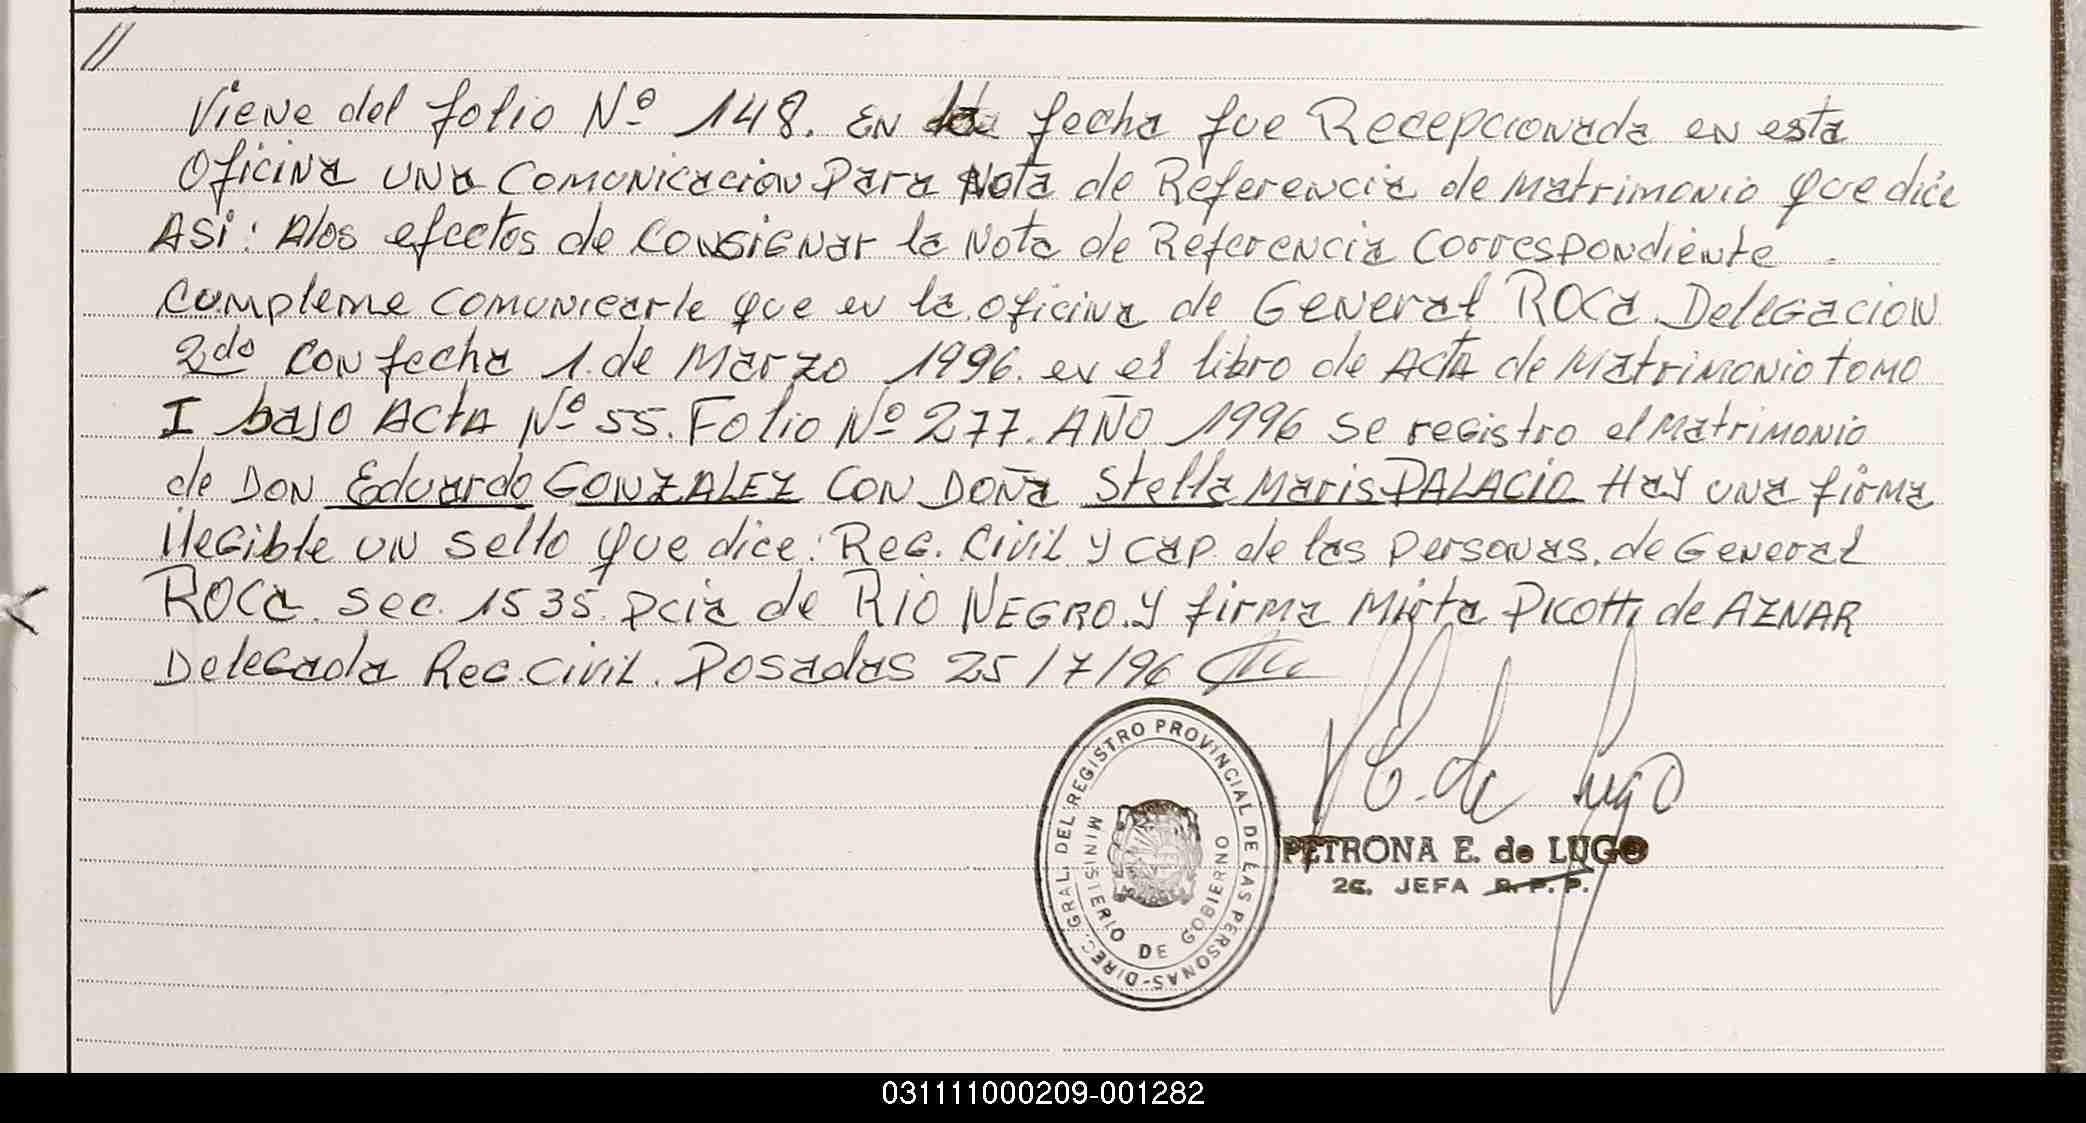 //
Viene del folio Nº 148. EN la fecha fue Recepcionada en esta
Oficina una Comunicacion Para Nota de Referencia de Matrimonio que dice
Asi: Alos efectos de Consignar la Nota de Referencia Correspondiente.
Cumpleme comunicarle que en la oficina de General ROCA Delegacion
2do Con fecha 1. de Marzo 1996. en el libro de Acta de Matrimonio tomo
I bajo Acta Nº 55. Folio Nº 277. AÑO 1996 se registro el Matrimonio
de DON Eduardo GONZALEZ CON DOÑA Stella Maris PALACIO Hay una firma
ilegible un sello que dice: Reg. Civil y cap de las personas. de General
ROCA. Sec. 1535. pcia de RIO NEGRO. Y firma Mirta Picotti de AZNAR
Delegada Reg. Civil. Posadas 25/7/96
DIREC. GRAL. DEL REGISTRO PROVINCIAL DE LAS PERSONAS-
MINISTERIO DE GOBIERNO
P. E. de Lugo
PETRONA E. de LUGO
2a. JEFA R. P. P.
031111000209-001282